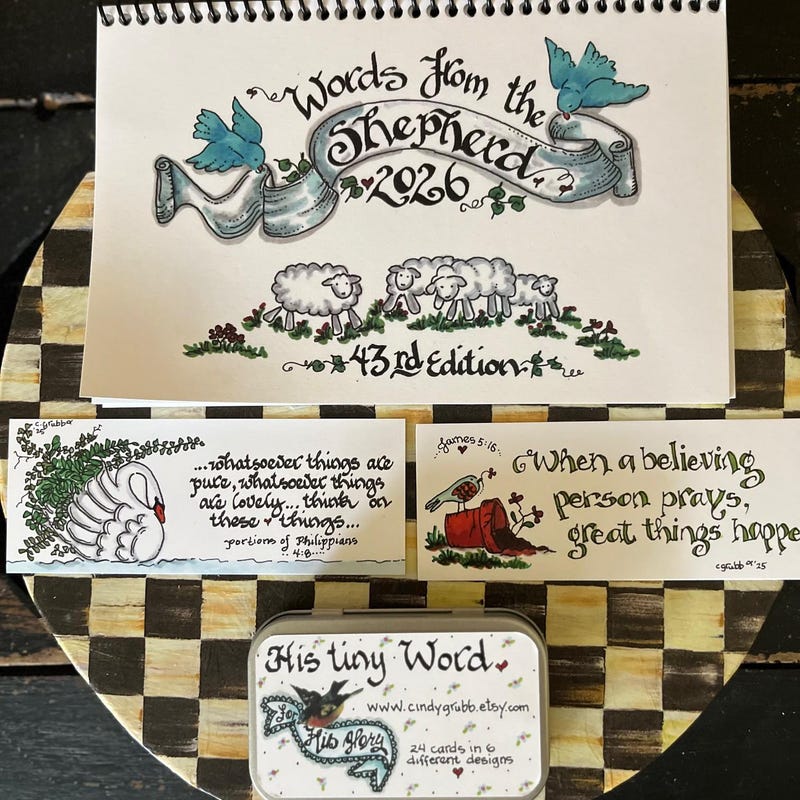 Words from the
Shepherd
2026
43rd Edition
C. Grubb
25
...whatsoever things are
pure, whatsoever things
are lovely... think on
these things...
portions of Philippians
4:8....
James 5:16...
When a believing
person prays,
great things happe
cgrubb '25
His tiny Word
www.cindygrubb.etsy.com
For
His glory
24 cards in 6
different designs